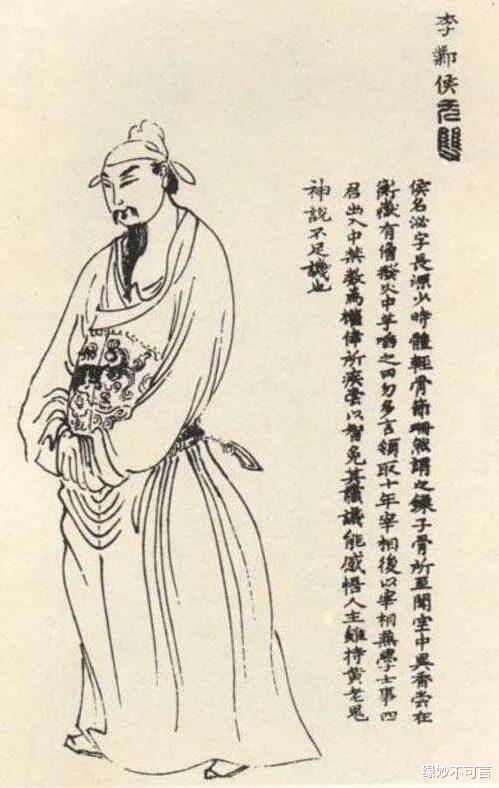 李鄴侯无雙
侯名泌字長源少時體輕骨節珊然謂之鎖子骨所至聞空中異香嘗在
衡嶽有僧撥火中芋啗之曰勿多言領取十年宰相後以宰相兼學士事四
召出入中禁數為權倖所疾嘗以智免其讜議能感悟人主雖持黃老鬼
神說不足譏也
缘妙不可言